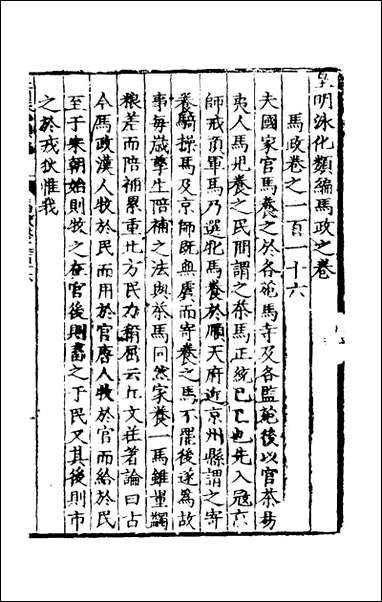 皇明泳化類編馬政之卷
馬政卷之一百一十六
夫國家官馬養之於各苑馬寺及各監苑後以官茶易
夷人馬兇養之民間謂之茶馬正統己巳也先入寇京
師戒頂軍馬乃選兇馬養於順天府近京州縣謂之寄
養騎操馬及京師既無虞而寄養之馬不罷後遂為故
事每歲孳生陪補之法與茶馬同然家養一馬雖量蠲
糧差而陪補累重北方民力屈云丘文莊著論曰古
今馬政漢人牧於民而用於官唐人牧於官而給於民
至于宋朝始則牧之在官後則畜之于民又其後則市
之於戎狄惟我